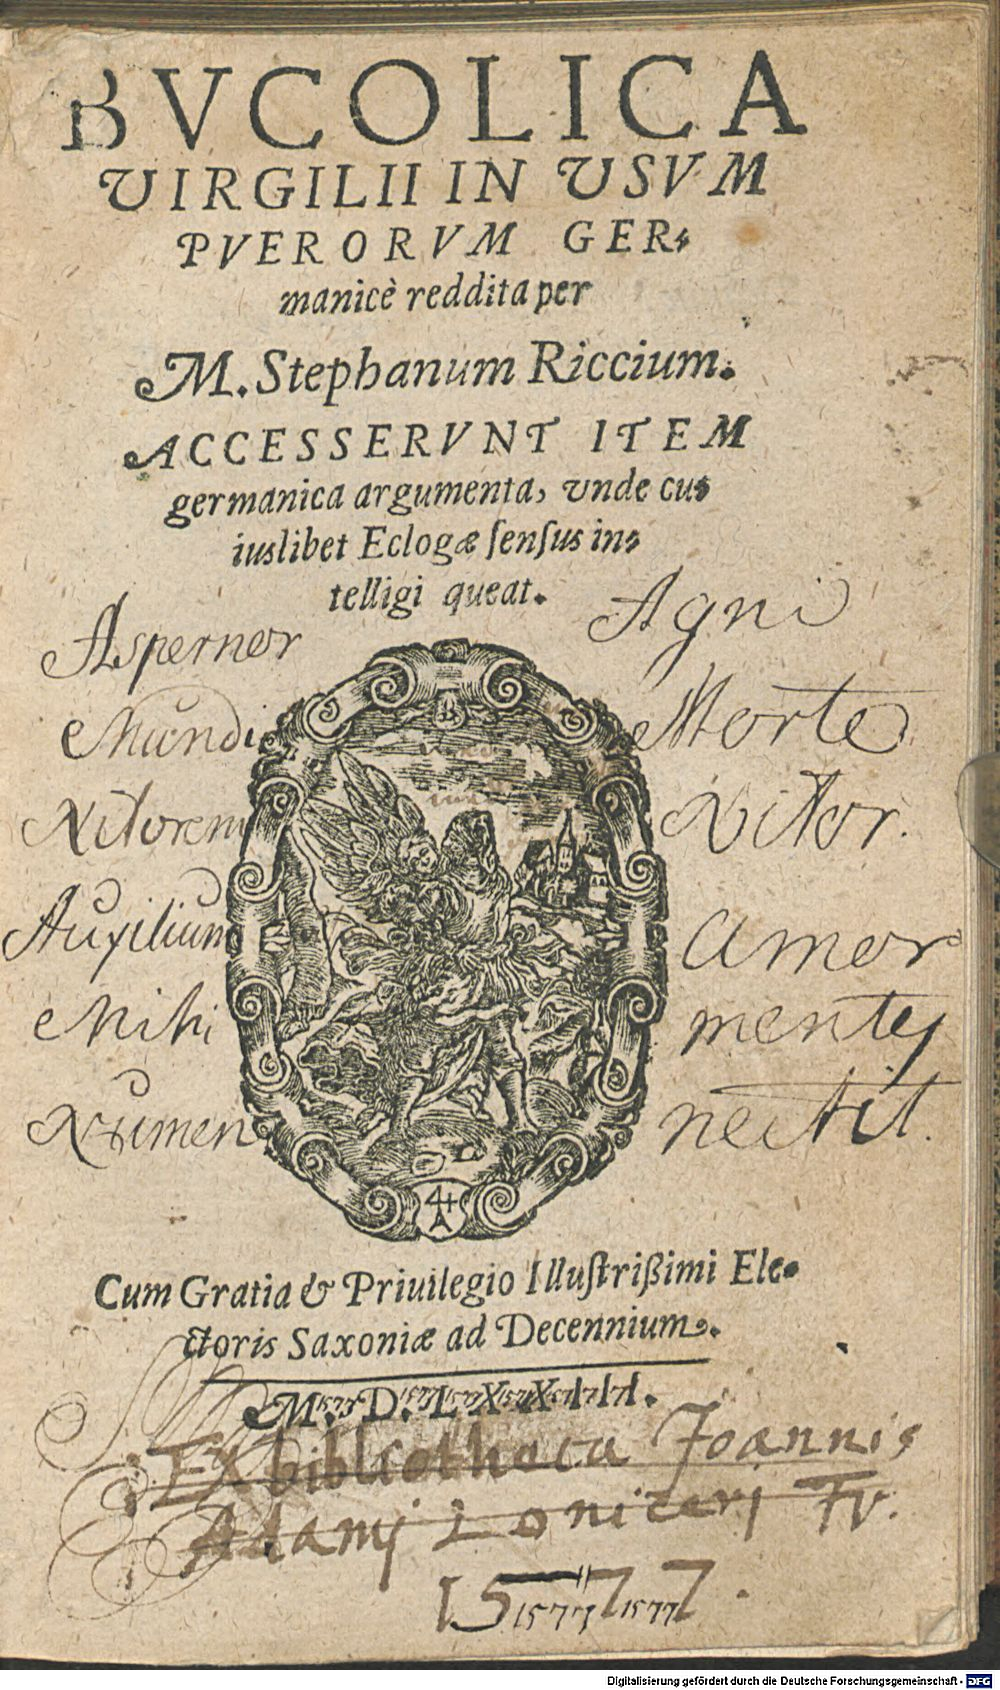 BVCOLICA
VIRGILII IN VSVM
PVERORVM GER-
manicè reddita per
M. Stephanum Riccium.
ACCESSERVNT ITEM
germanica argumenta, vnde cu-
iuslibet Eclogæ ſenſus in-
telligi queat.
Aspernor Agni
Mundi Morte
Nitorem Nitor.
Auxilium Amor
Mihi mentis
Numen nectit.
B
4
A
Cum Gratia & Priuilegio Illuſtrißimi Ele-
ctoris Saxoniæ ad Decennium.
M. D. LXXIII.
EX bibliotheca Joannis
Adamj Loniceri Fv.
1577
1577 1577
Digitalisierung gefördert durch die Deutsche Forschungsgemeinschaft - DFG